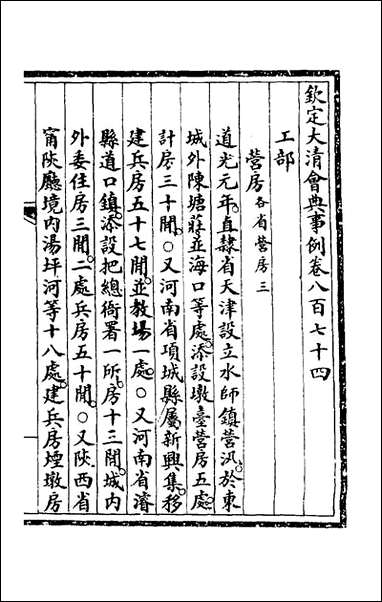 欽定大清會典事例卷八百七十四
工部
營房各省營房三
道光元年直隸省天津設立水師鎮營汛於東
城外陳塘莊並海口等處添設墩臺營房五處
計房三十閒○又河南省項城縣屬新興集移
建兵房五十七閒並教場一處○又河南省濬
縣道口鎮添設把總衙署一所房十三閒城內
外委住房三閒二處兵房五十閒○又陝西省
甯陝廳境內湯坪河等十八處建兵房煙墩房